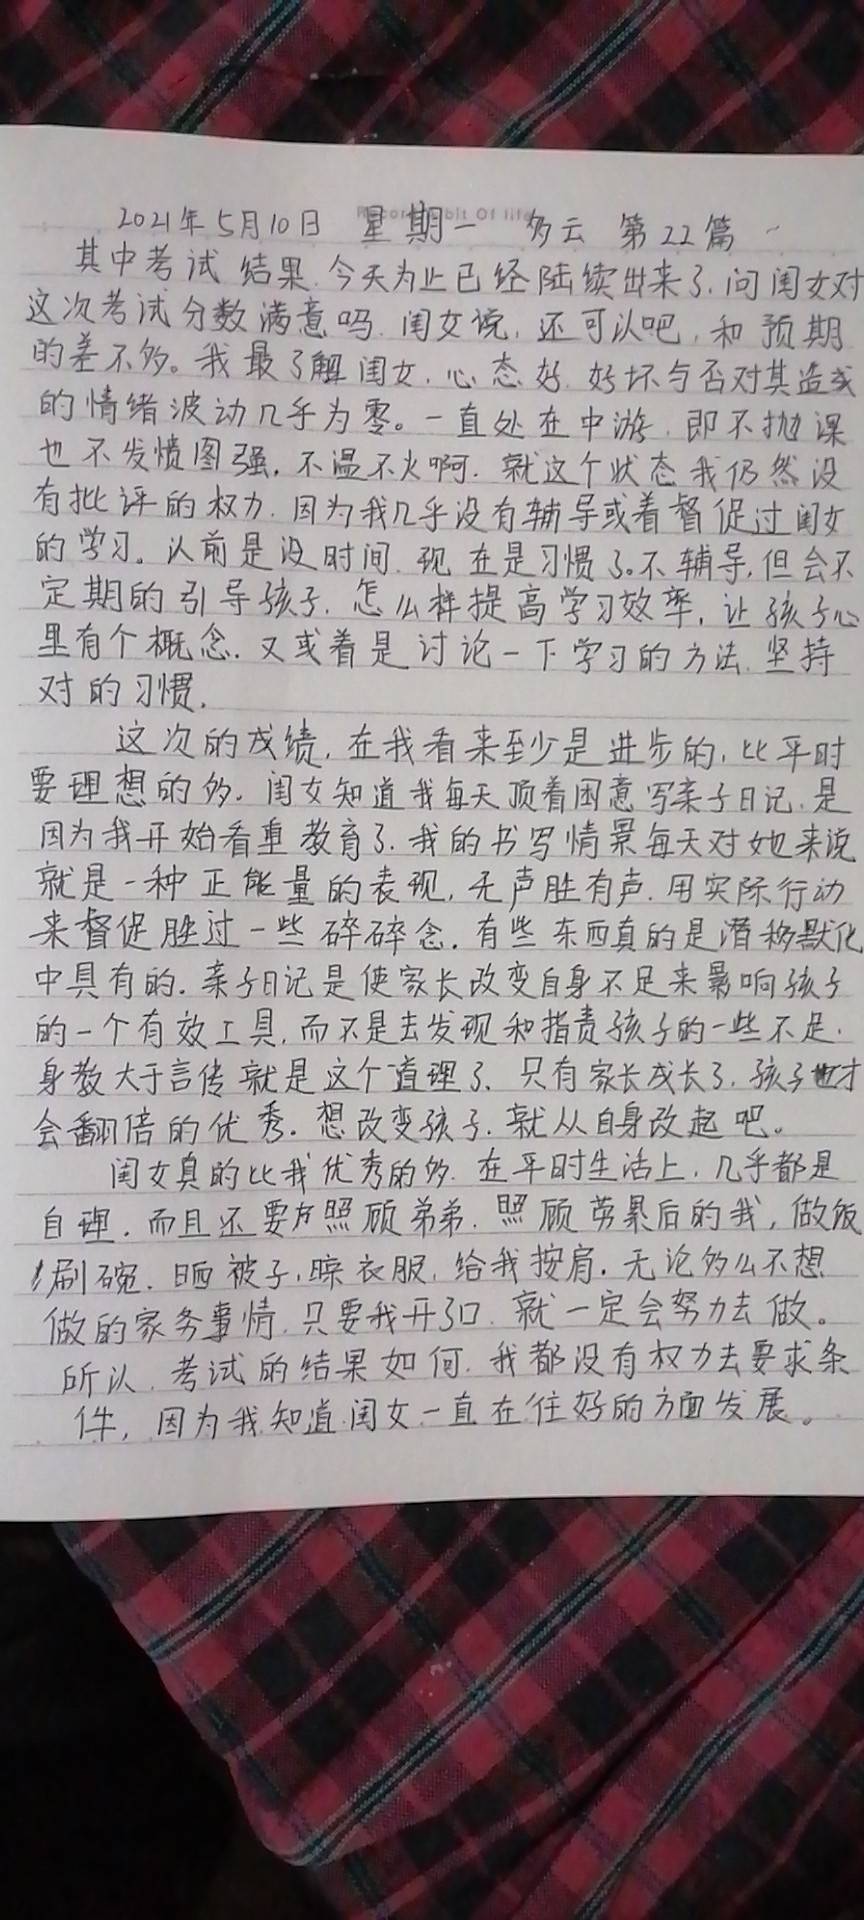 2021年5月10日 星期一 多云 第22篇
其中考试结果.今天为止已经陆续出来了.问闺女对
这次考试分数满意吗.闺女说,还可以吧,和预期
的差不多。我最了解闺女.心态好.好坏与否对其造成
的情绪波动几乎为零。一直处在中游.即不抛课
也不发愤图强,不温不火啊.就这个状态我仍然没
有批评的权力.因为我几乎没有辅导或着督促过闺女
的学习。以前是没时间.现在是习惯了。不辅导,但会不
定期的引导孩子.怎么样提高学习效率,让孩子心
里有个概念.又或着是讨论一下学习的方法.坚持
对的习惯.
这次的成绩,在我看来至少是进步的,比平时
要理想的多.闺女知道我每天顶着困意写亲子日记.是
因为我开始看重教育了.我的书写情景每天对她来说
就是一种正能量的表现,无声胜有声.用实际行动
来督促胜过一些碎碎念.有些东西真的是潜移默化
中具有的.亲子日记是使家长改变自身不足来影响孩子
的一个有效工具,而不是去发现和指责孩子的一些不足.
身教大于言传就是这个道理了.只有家长成长了.孩子也才
会翻倍的优秀.想改变孩子.就从自身改起吧。
闺女真的比我优秀的多.在平时生活上,几乎都是
自理.而且还要照顾弟弟.照顾劳累后的我,做饭
刷碗.晒被子,晾衣服,给我按肩.无论多么不想
做的家务事情.只要我开了口.就一定会努力去做。
所以.考试的结果如何.我都没有权力去要求条
件,因为我知道闺女一直在往好的方面发展。